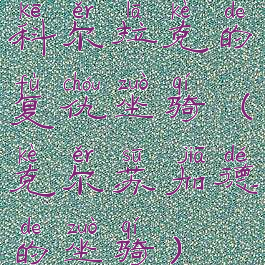 kē ěr lā kè de
科尔拉克的
fù chóu zuò qí
复仇坐骑（
kè ěr sū jiā dé
克尔苏加德
de zuò qí
的坐骑）